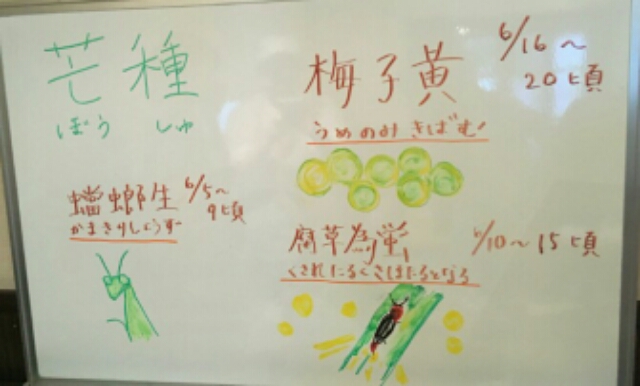 芒種
ぼう しゅ
蟷螂生 6/5～9日頃
かまきりしょうず
梅子黄 6/16～20日頃
うめのみ きばむ
腐草為蛍 6/10～15日頃
くされたるくさほたるとなる